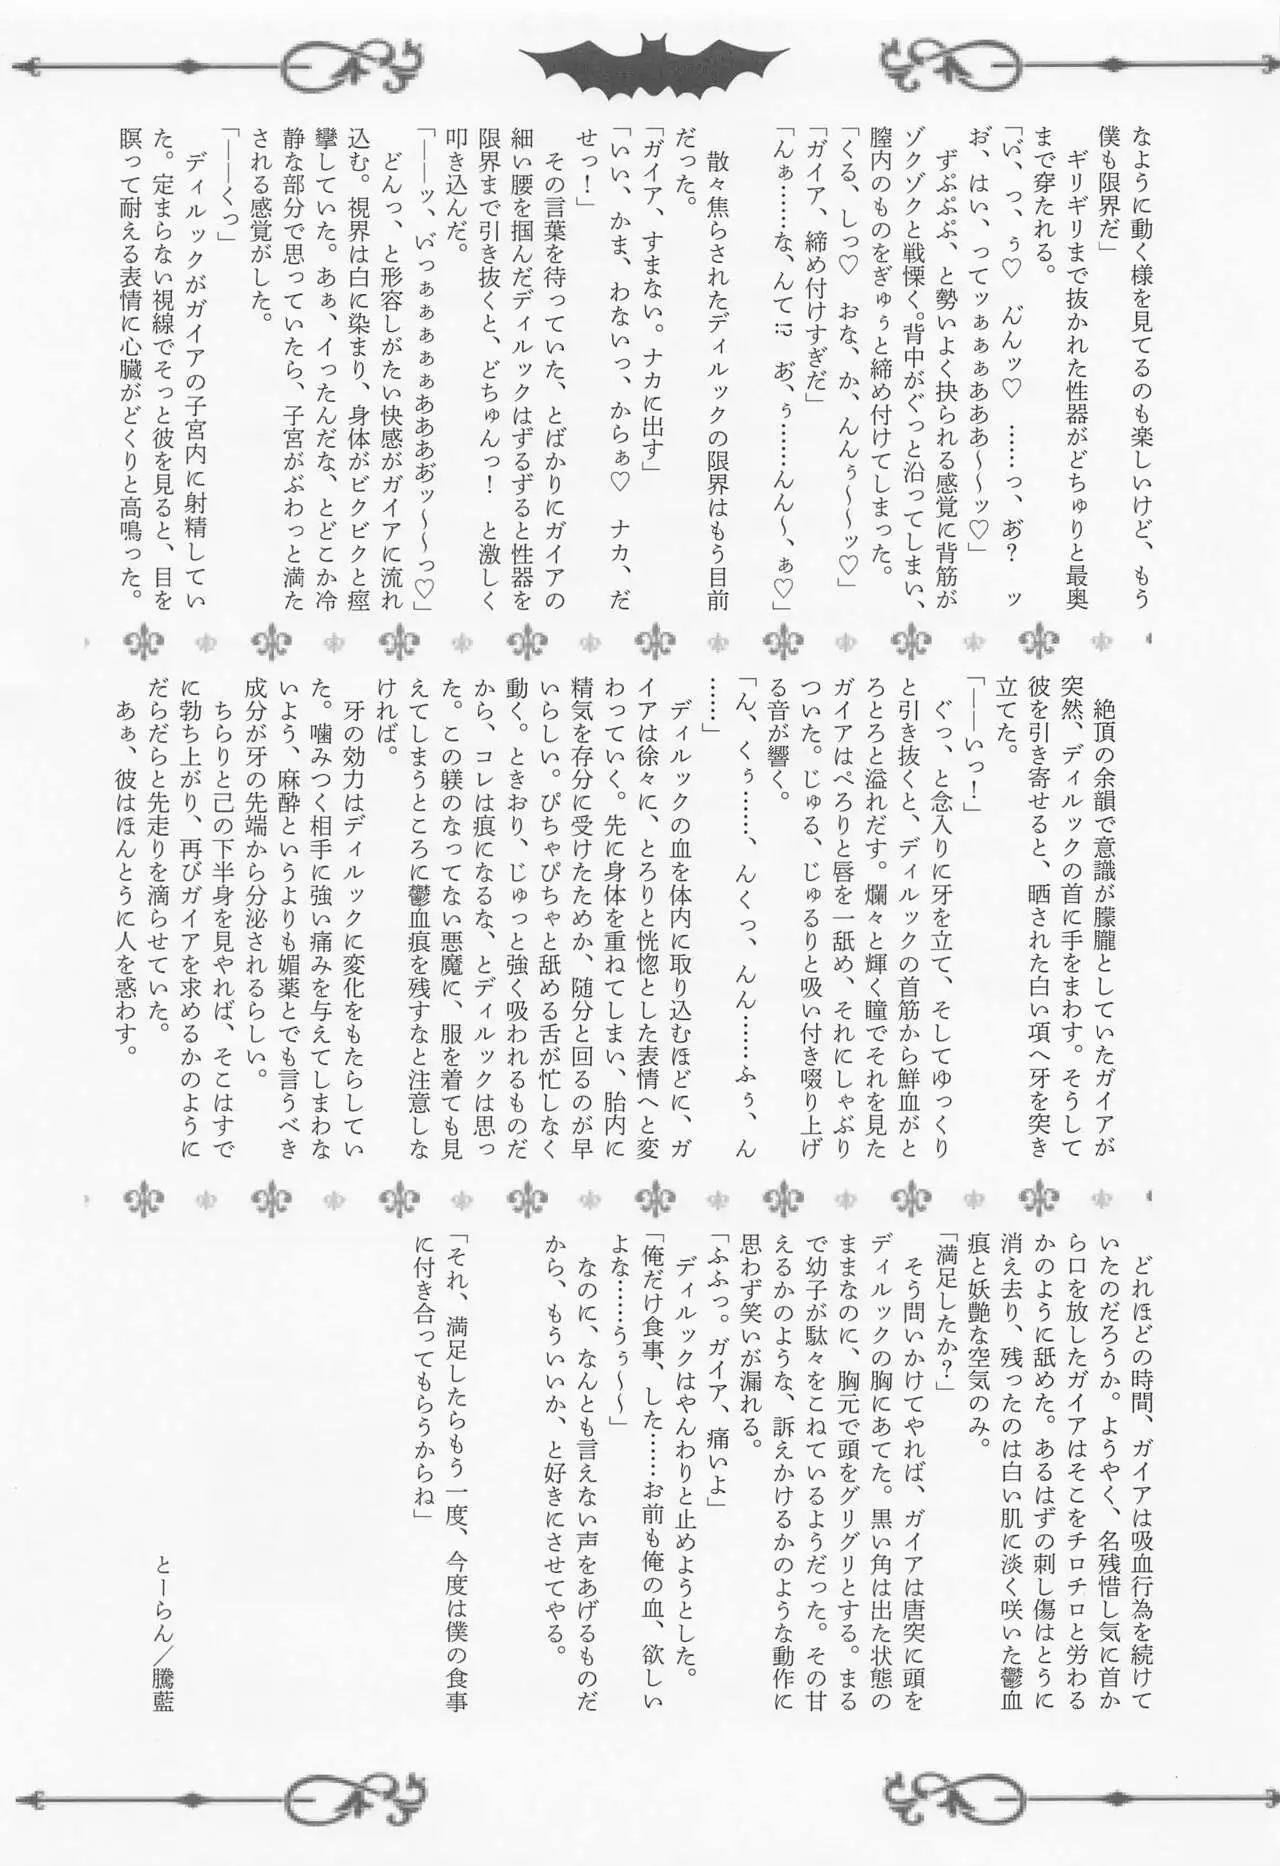 なように動く様を見てるのも楽しいけど、もう
僕も限界だ」
　ギリギリまで抜かれた性器がどちゅりと最奥
まで穿たれる。
「い゛、っ、ぅ♡　ん゛ンッ♡　……っ、あ゛？　ッ
お゛、はい、ってッぁぁぁあああ～～ッ♡」
　ずぷぷぷ、と勢いよく抉られる感覚に背筋が
ゾクゾクと戦慄く。背中がぐっと沿ってしまい、
膣内のものをぎゅぅと締め付けてしまった。
「くる、しっ♡　おな、か、んんぅ～～ッ♡」
「ガイア、締め付けすぎだ」
「んぁ……な、んて!?　あ゛、ぅ……んん～、ぁ♡」
　散々焦らされたディルックの限界はもう目前
だった。
「ガイア、すまない。ナカに出す」
「いい、かま、わないっ、からぁ♡　ナカ、だ
せっ！」
　その言葉を待っていた、とばかりにガイアの
細い腰を掴んだディルックはずるずると性器を
限界まで引き抜くと、どちゅんっ！　と激しく
叩き込んだ。
「――ッ、い゛っぁぁぁぁあああぢッ～～っ♡」
　どんっ、と形容しがたい快感がガイアに流れ
込む。視界は白に染まり、身体がビクビクと痙
攣していた。あぁ、イったんだな、とどこか冷
静な部分で思っていたら、子宮がぶわっと満た
される感覚がした。
「――くっ」
　ディルックがガイアの子宮内に射精してい
た。定まらない視線でそっと彼を見ると、目を
瞑って耐える表情に心臓がどくりと高鳴った。
　絶頂の余韻で意識が朦朧としていたガイアが
突然、ディルックの首に手をまわす。そうして
彼を引き寄せると、晒された白い項へ牙を突き
立てた。
「――いっ！」
　ぐっ、と念入りに牙を立て、そしてゆっくり
と引き抜くと、ディルックの首筋から鮮血がと
ろとろと溢れだす。爛々と輝く瞳でそれを見た
ガイアはぺろりと唇を一舐め、それにしゃぶり
ついた。じゅる、じゅるりと吸い付き啜り上げ
る音が響く。
「ん、くぅ……、んくっ、んん……ふぅ、ん
……」
　ディルックの血を体内に取り込むほどに、ガ
イアは徐々に、とろりと恍惚とした表情へと変
わっていく。先に身体を重ねてしまい、胎内に
精気を存分に受けたためか、随分と回るのが早
いらしい。ぴちゃぴちゃと舐める舌が忙しなく
動く。ときおり、じゅっと強く吸われるものだ
から、コレは痕になるな、とディルックは思っ
た。この躾のなってない悪魔に、服を着ても見
えてしまうところに鬱血痕を残すなと注意しな
ければ。
　牙の効力はディルックに変化をもたらしてい
た。噛みつく相手に強い痛みを与えてしまわな
いよう、麻酔というよりも媚薬とでも言うべき
成分が牙の先端から分泌されるらしい。
　ちらりと己の下半身を見やれば、そこはすで
に勃ち上がり、再びガイアを求めるかのように
だらだらと先走りを滴らせていた。
　あぁ、彼はほんとうに人を惑わす。
　どれほどの時間、ガイアは吸血行為を続けて
いたのだろうか。ようやく、名残惜し気に首か
ら口を放したガイアはそこをチロチロと労わる
かのように舐めた。あるはずの刺し傷はとうに
消え去り、残ったのは白い肌に淡く咲いた鬱血
痕と妖艶な空気のみ。
「満足したか？」
　そう問いかけてやれば、ガイアは唐突に頭を
ディルックの胸にあてた。黒い角は出た状態の
ままなのに、胸元で頭をグリグリとする。まる
で幼子が駄々をこねているようだった。その甘
えるかのような、訴えかけるかのような動作に
思わず笑いが漏れる。
「ふふっ。ガイア、痛いよ」
　ディルックはやんわりと止めようとした。
「俺だけ食事、した……お前も俺の血、欲しい
よな……うぅ～～」
　なのに、なんとも言えない声をあげるものだ
から、もういいか、と好きにさせてやる。
「それ、満足したらもう一度、今度は僕の食事
に付き合ってもらうからね」
とーらん／騰藍